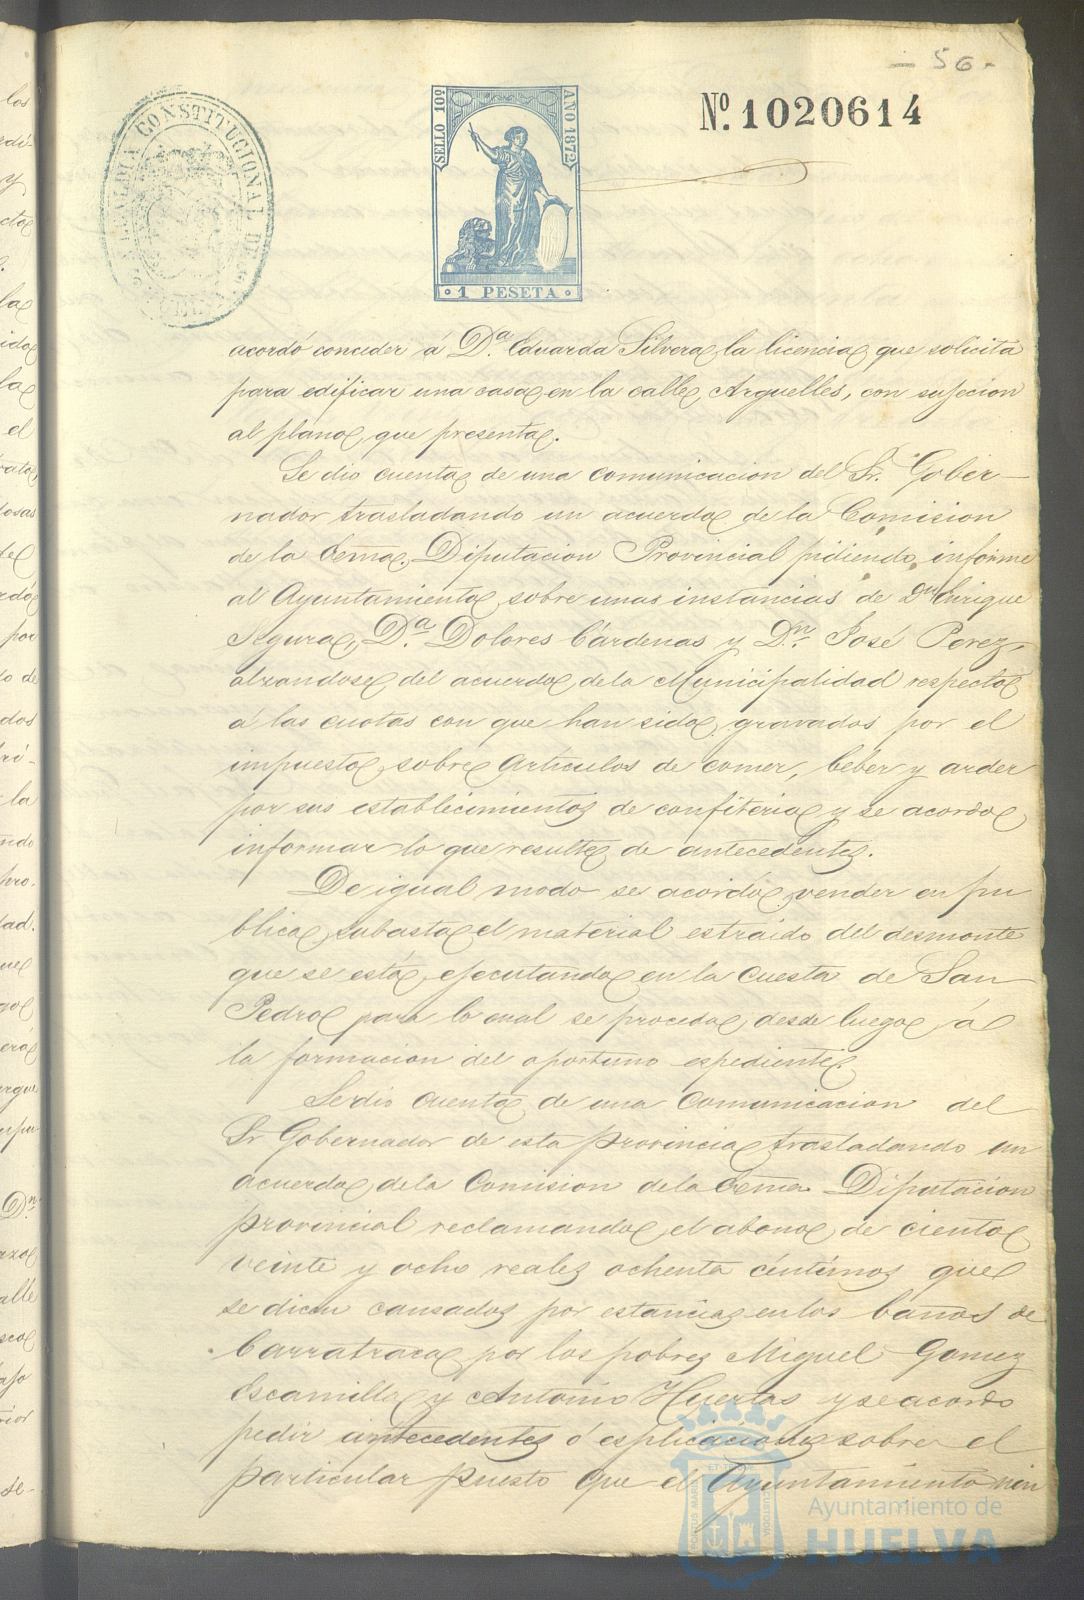 - 56 -
ALCALDIA CONSTITUCIONAL DE
SELLO 10º
AÑO 1872
1 PESETA
Nº. 1020614
acordó conceder á D.ª Eduarda Silvera, la licencia, que solicita
para edificar una casa en la calle Arguelles, con sujecion
al plano, que presenta.
Se dio cuenta de una comunicacion del Sr. Gober-
nador trasladando un acuerdo de la Comision
de la Exma. Diputacion Provincial pidiendo informe
al Ayuntamiento, sobre unas instancias de Dn Enrique
Segura, D.ª Dolores Cárdenas y D.n José Perez,
alzandose del acuerdo de la Municipalidad respecto
á las cuotas con que han sido gravados por el
impuesto sobre Artículos de comer, beber y arder
por sus establecimientos de confiteria y se acordo
informar lo que resulte de antecedentes.
De igual modo se acordó vender en pu
blica subasta el material estraido del desmonte
que se está ejecutando en la Cuesta de San
Pedro para lo cual se proceda, desde luego á
la formacion del oportuno espediente.
Se dio cuenta de una Comunicacion del
Sr Gobernador de esta provincia trasladando un
acuerdo de la Comision de la Exma Diputacion
provincial reclamando el abono de ciento
veinte y ocho reales ochenta céntimos que
se dicen causados por estancias en los baños de
Carratraca por los pobres Miguel Gomez
Escamilla y Antonio Huertas y se acordo
pedir antecedentes ó esplicaciones sobre el
particular puesto que el Ayuntamiento nin
Ayuntamiento de
HUELVA